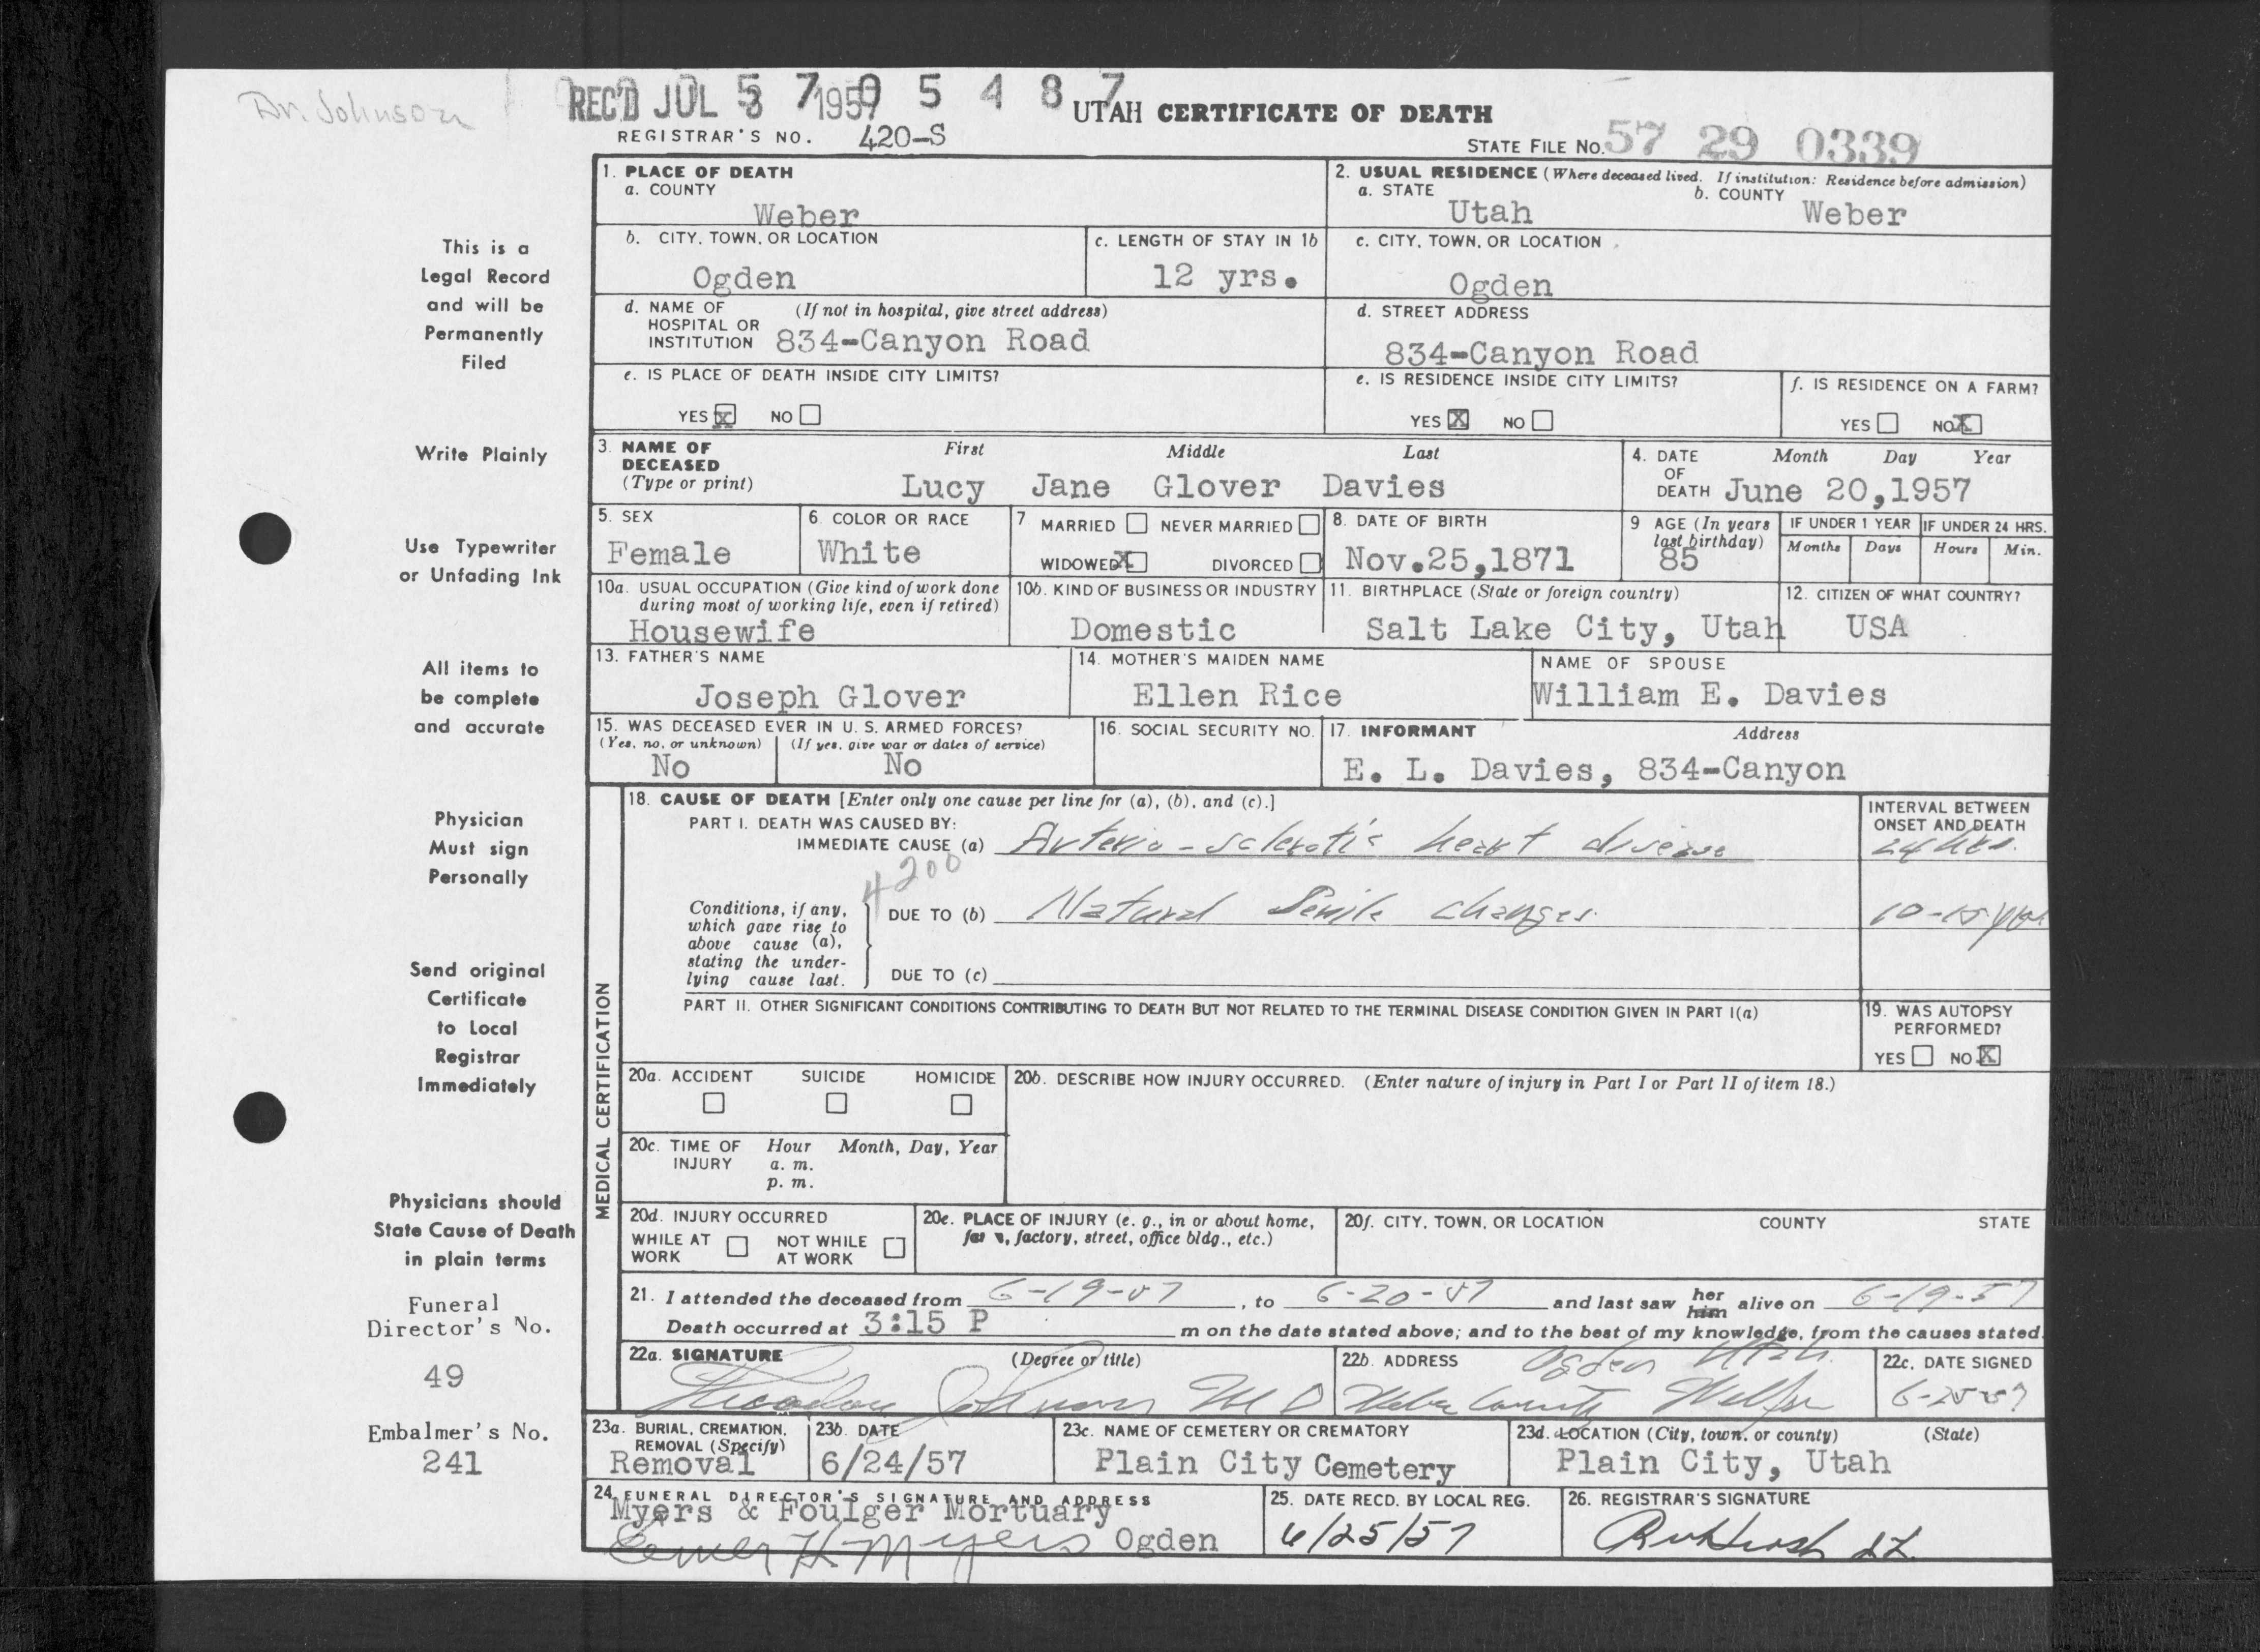 Dr. Johnson
REC'D JUL 8 1957
5 7 0 5 4 8 7
UTAH CERTIFICATE OF DEATH
REGISTRAR'S NO. 420-S
STATE FILE NO. 57 29 0339
This is a
Legal Record
and will be
Permanently
Filed
Write Plainly
Use Typewriter
or Unfading Ink
All items to
be complete
and accurate
Physician
Must sign
Personally
Send original
Certificate
to Local
Registrar
Immediately
Physicians should
State Cause of Death
in plain terms
Funeral
Director's No.
49
Embalmer's No.
241
1. PLACE OF DEATH
a. COUNTY
Weber
2. USUAL RESIDENCE (Where deceased lived. If institution: Residence before admission)
a. STATE b. COUNTY
Utah Weber
b. CITY, TOWN, OR LOCATION
Ogden
c. LENGTH OF STAY IN 1b
12 yrs.
c. CITY, TOWN, OR LOCATION
Ogden
d. NAME OF (If not in hospital, give street address)
HOSPITAL OR
INSTITUTION 834-Canyon Road
d. STREET ADDRESS
834-Canyon Road
e. IS PLACE OF DEATH INSIDE CITY LIMITS?
YES X NO
e. IS RESIDENCE INSIDE CITY LIMITS?
YES X NO
f. IS RESIDENCE ON A FARM?
YES NO X
3. NAME OF First Middle Last
DECEASED
(Type or print) Lucy Jane Glover Davies
4. DATE Month Day Year
OF
DEATH June 20,1957
5. SEX
Female
6. COLOR OR RACE
White
7 MARRIED NEVER MARRIED
WIDOWED X DIVORCED
8. DATE OF BIRTH
Nov.25,1871
9 AGE (In years
last birthday)
85
IF UNDER 1 YEAR
Months Days
IF UNDER 24 HRS.
Hours Min.
10a. USUAL OCCUPATION (Give kind of work done
during most of working life, even if retired)
Housewife
10b. KIND OF BUSINESS OR INDUSTRY
Domestic
11. BIRTHPLACE (State or foreign country)
Salt Lake City, Utah
12. CITIZEN OF WHAT COUNTRY?
USA
13. FATHER'S NAME
Joseph Glover
14. MOTHER'S MAIDEN NAME
Ellen Rice
NAME OF SPOUSE
William E. Davies
15. WAS DECEASED EVER IN U. S. ARMED FORCES?
(Yes, no, or unknown) (If yes, give war or dates of service)
No No
16. SOCIAL SECURITY NO.
17. INFORMANT Address
E. L. Davies, 834-Canyon
MEDICAL CERTIFICATION
18. CAUSE OF DEATH [Enter only one cause per line for (a), (b), and (c).]
PART I. DEATH WAS CAUSED BY:
IMMEDIATE CAUSE (a) Arterio-sclerotic heart disease
INTERVAL BETWEEN
ONSET AND DEATH
24 hrs.
4200
Conditions, if any,
which gave rise to
above cause (a),
stating the under-
lying cause last.
DUE TO (b) Natural Senile changes
10-15 yrs
DUE TO (c)
PART II. OTHER SIGNIFICANT CONDITIONS CONTRIBUTING TO DEATH BUT NOT RELATED TO THE TERMINAL DISEASE CONDITION GIVEN IN PART I(a)
19. WAS AUTOPSY
PERFORMED?
YES NO X
20a. ACCIDENT SUICIDE HOMICIDE
20b. DESCRIBE HOW INJURY OCCURRED. (Enter nature of injury in Part I or Part II of item 18.)
20c. TIME OF Hour Month, Day, Year
INJURY a. m.
p. m.
20d. INJURY OCCURRED
WHILE AT NOT WHILE
WORK AT WORK
20e. PLACE OF INJURY (e. g., in or about home,
farm, factory, street, office bldg., etc.)
20f. CITY, TOWN, OR LOCATION COUNTY STATE
21. I attended the deceased from 6-19-57, to 6-20-57 and last saw her him alive on 6-19-57
Death occurred at 3:15 P m on the date stated above; and to the best of my knowledge, from the causes stated.
22a. SIGNATURE (Degree or title)
Theodore Johnson M D
22b. ADDRESS Ogden Utah
Weber County
22c. DATE SIGNED
6-25-57
23a. BURIAL, CREMATION,
REMOVAL (Specify)
Removal
23b. DATE
6/24/57
23c. NAME OF CEMETERY OR CREMATORY
Plain City Cemetery
23d. LOCATION (City, town, or county) (State)
Plain City, Utah
24. FUNERAL DIRECTOR'S SIGNATURE AND ADDRESS
Myers & Foulger Mortuary
Elmer H. Myers Ogden
25. DATE RECD. BY LOCAL REG.
6/25/57
26. REGISTRAR'S SIGNATURE